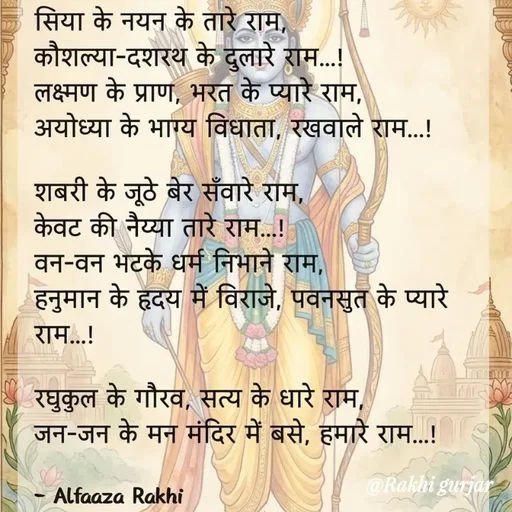 सिया के नयन के तारे राम,
कौशल्या-दशरथ के दुलारे राम...!
लक्ष्मण के प्राण, भरत के प्यारे राम,
अयोध्या के भाग्य विधाता, रखवाले राम...!
शबरी के जूठे बेर सँवारे राम,
केवट की नैय्या तारे राम...!
वन-वन भटके धर्म निभाने राम,
हनुमान के हृदय में विराजे, पवनसुत के प्यारे
राम...!
रघुकुल के गौरव, सत्य के धारे राम,
जन-जन के मन मंदिर में बसे, हमारे राम...!
@Rakhi gurjar
- Alfaaza Rakhi